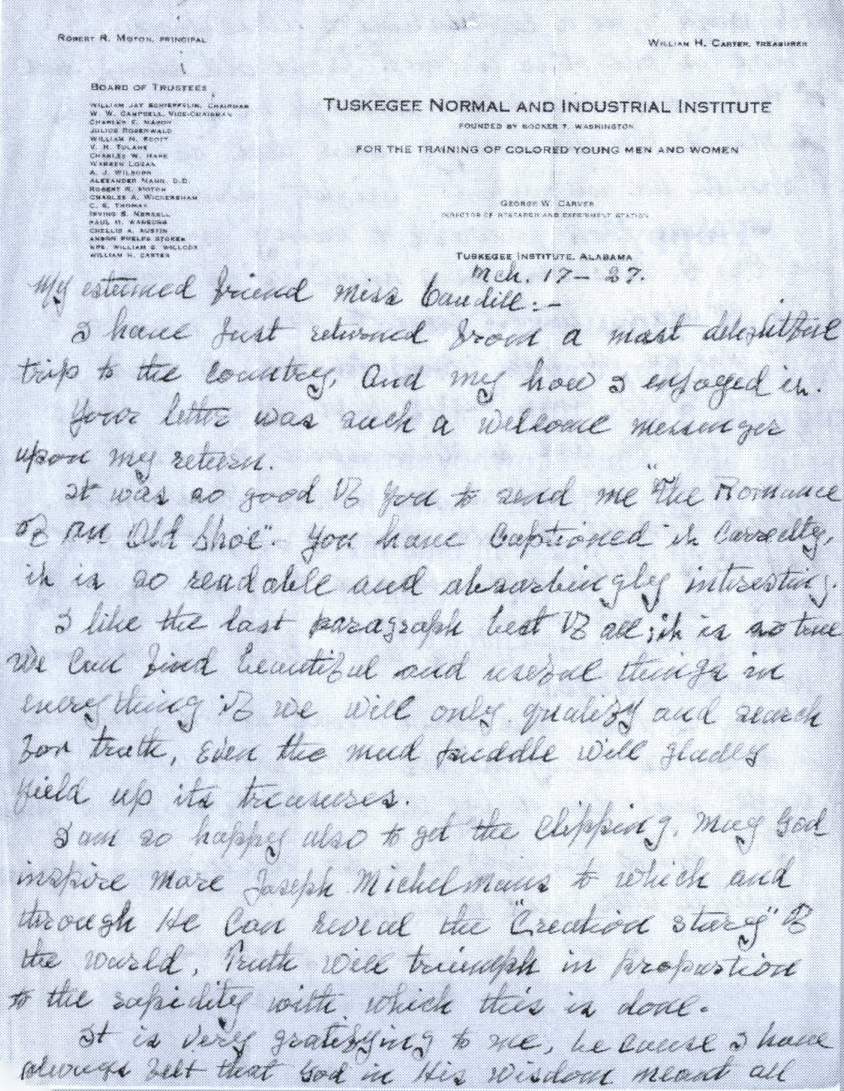 ROBERT R. MOTON, PRINCIPAL
WILLIAM H. CARTER, TREASURER
BOARD OF TRUSTEES
WILLIAM JAY SCHIEFFELIN, CHAIRMAN
W. W. CAMPBELL, VICE-CHAIRMAN
CHARLES E. MASON
JULIUS ROSENWALD
WILLIAM M. SCOTT
V. H. TULANE
CHARLES W. HARE
WARREN LOGAN
A. J. WILBORN
ALEXANDER MANN, D.D.
ROBERT R. MOTON
CHARLES A. WICKERSHAM
C. E. THOMAS
PAUL M. WARBURG
CHELLIS A. AUSTIN
ANSON PHELPS STOKES
MRS. WILLIAM G. WILLCOX
WILLIAM H. CARTER
TUSKEGEE NORMAL AND INDUSTRIAL INSTITUTE
FOUNDED BY BOOKER T. WASHINGTON
FOR THE TRAINING OF COLORED YOUNG MEN AND WOMEN
GEORGE W. CARVER
DIRECTOR OF RESEARCH AND EXPERIMENT STATION
TUSKEGEE INSTITUTE, ALABAMA
Mch. 17-27.
My esteemed friend Miss Caudill:-
I have just returned from a most delightful
trip to the country, and my how I enjoyed it.
Your letter was such a welcome messenger
upon my return.
It was so good of you to send me "The Romance
of an Old Shoe". You have captioned it correctly,
it is so readable and absorbingly interesting.
I like the last paragraph best of all; it is so true
We can find beautiful and useful things in
everything if we will only, qualify and search
for truth, Even the mud puddle will gladly
yield up its treasures.
I am so happy also to get the clipping. May God
inspire more Joseph Michelmans to which and
through He can reveal the "Creation story" of
the world. Truth will triumph in proportion
to the rapidity with which this is done.
It is very gratifying to me, because I have
always felt that God in His wisdom meant all